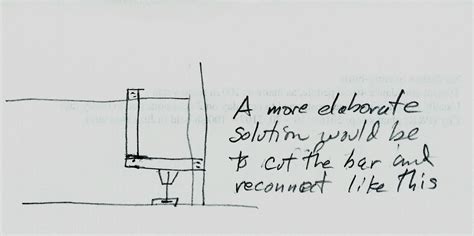 A more elaborate
solution would be
to cut the bar and
reconnect like this